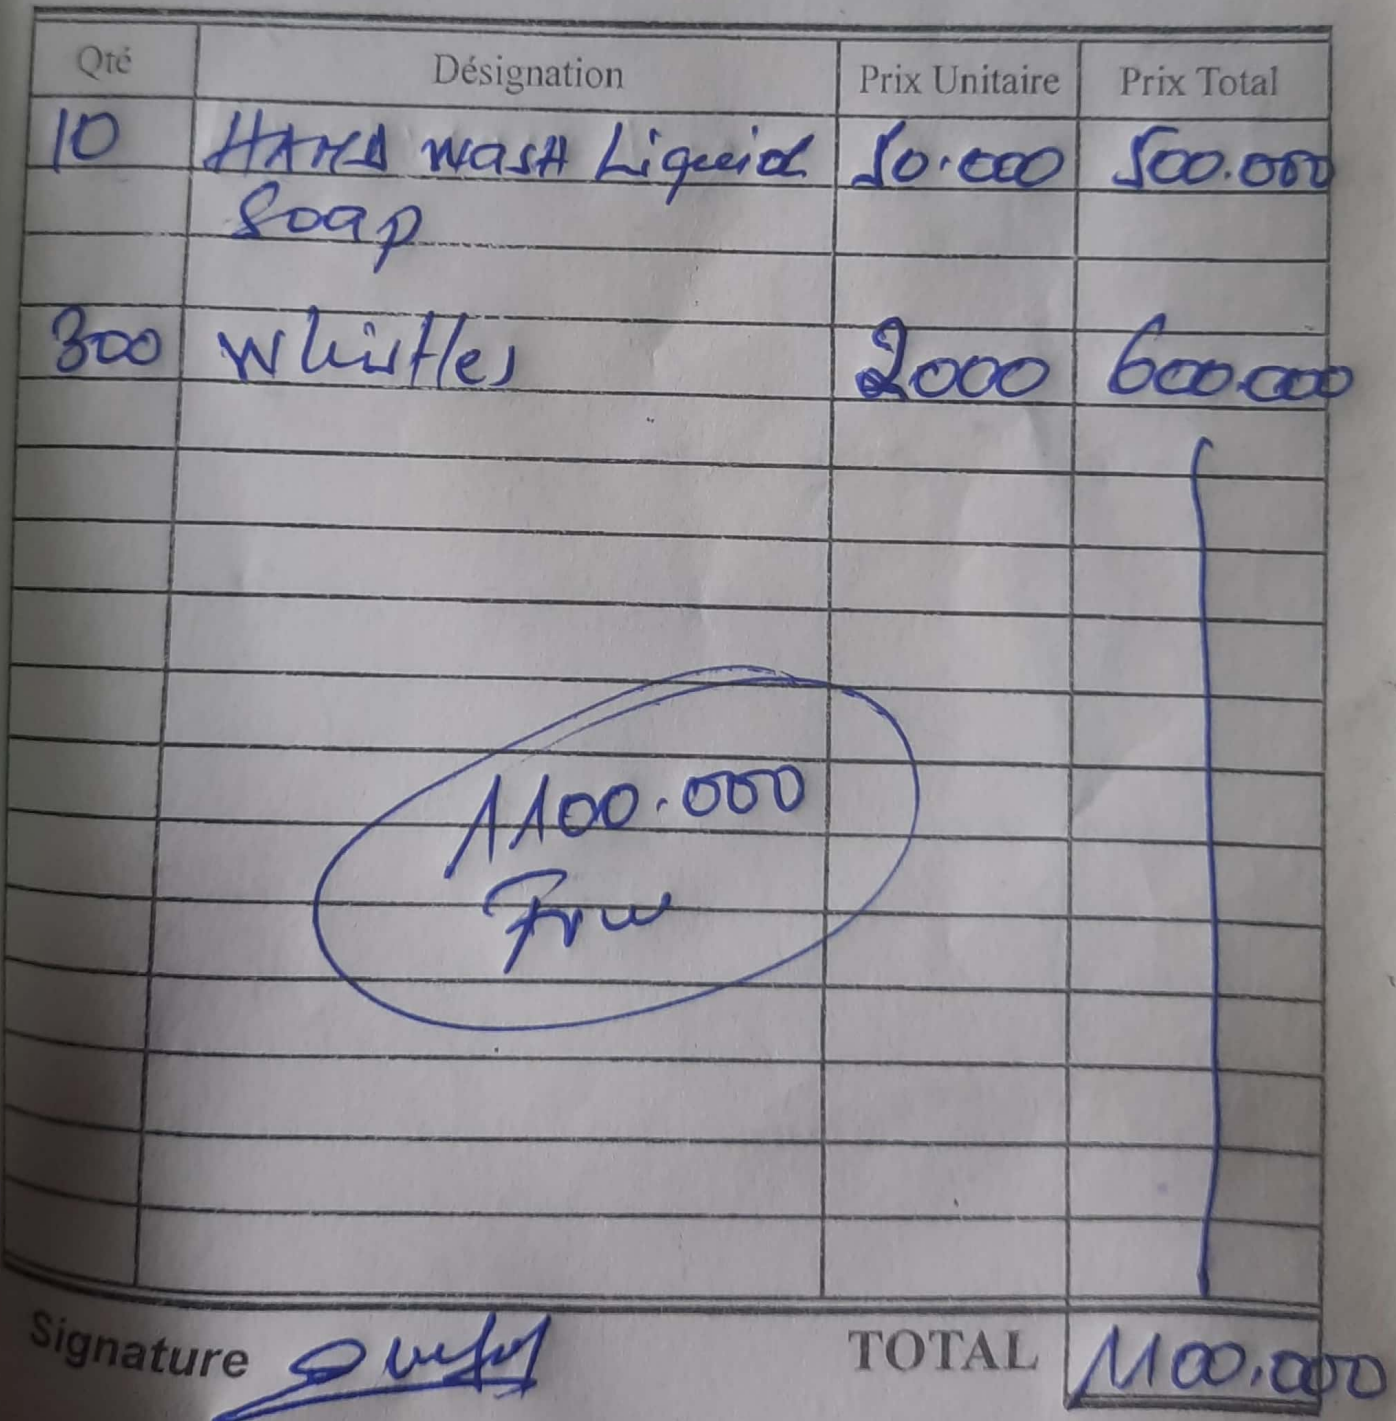 Qté Désignation Prix Unitaire Prix Total
10 HAND WASH Liquid 50.000 500.000
Soap
300 Whistles 2000 600.000
1100.000
Frw
Signature TOTAL 1100.000